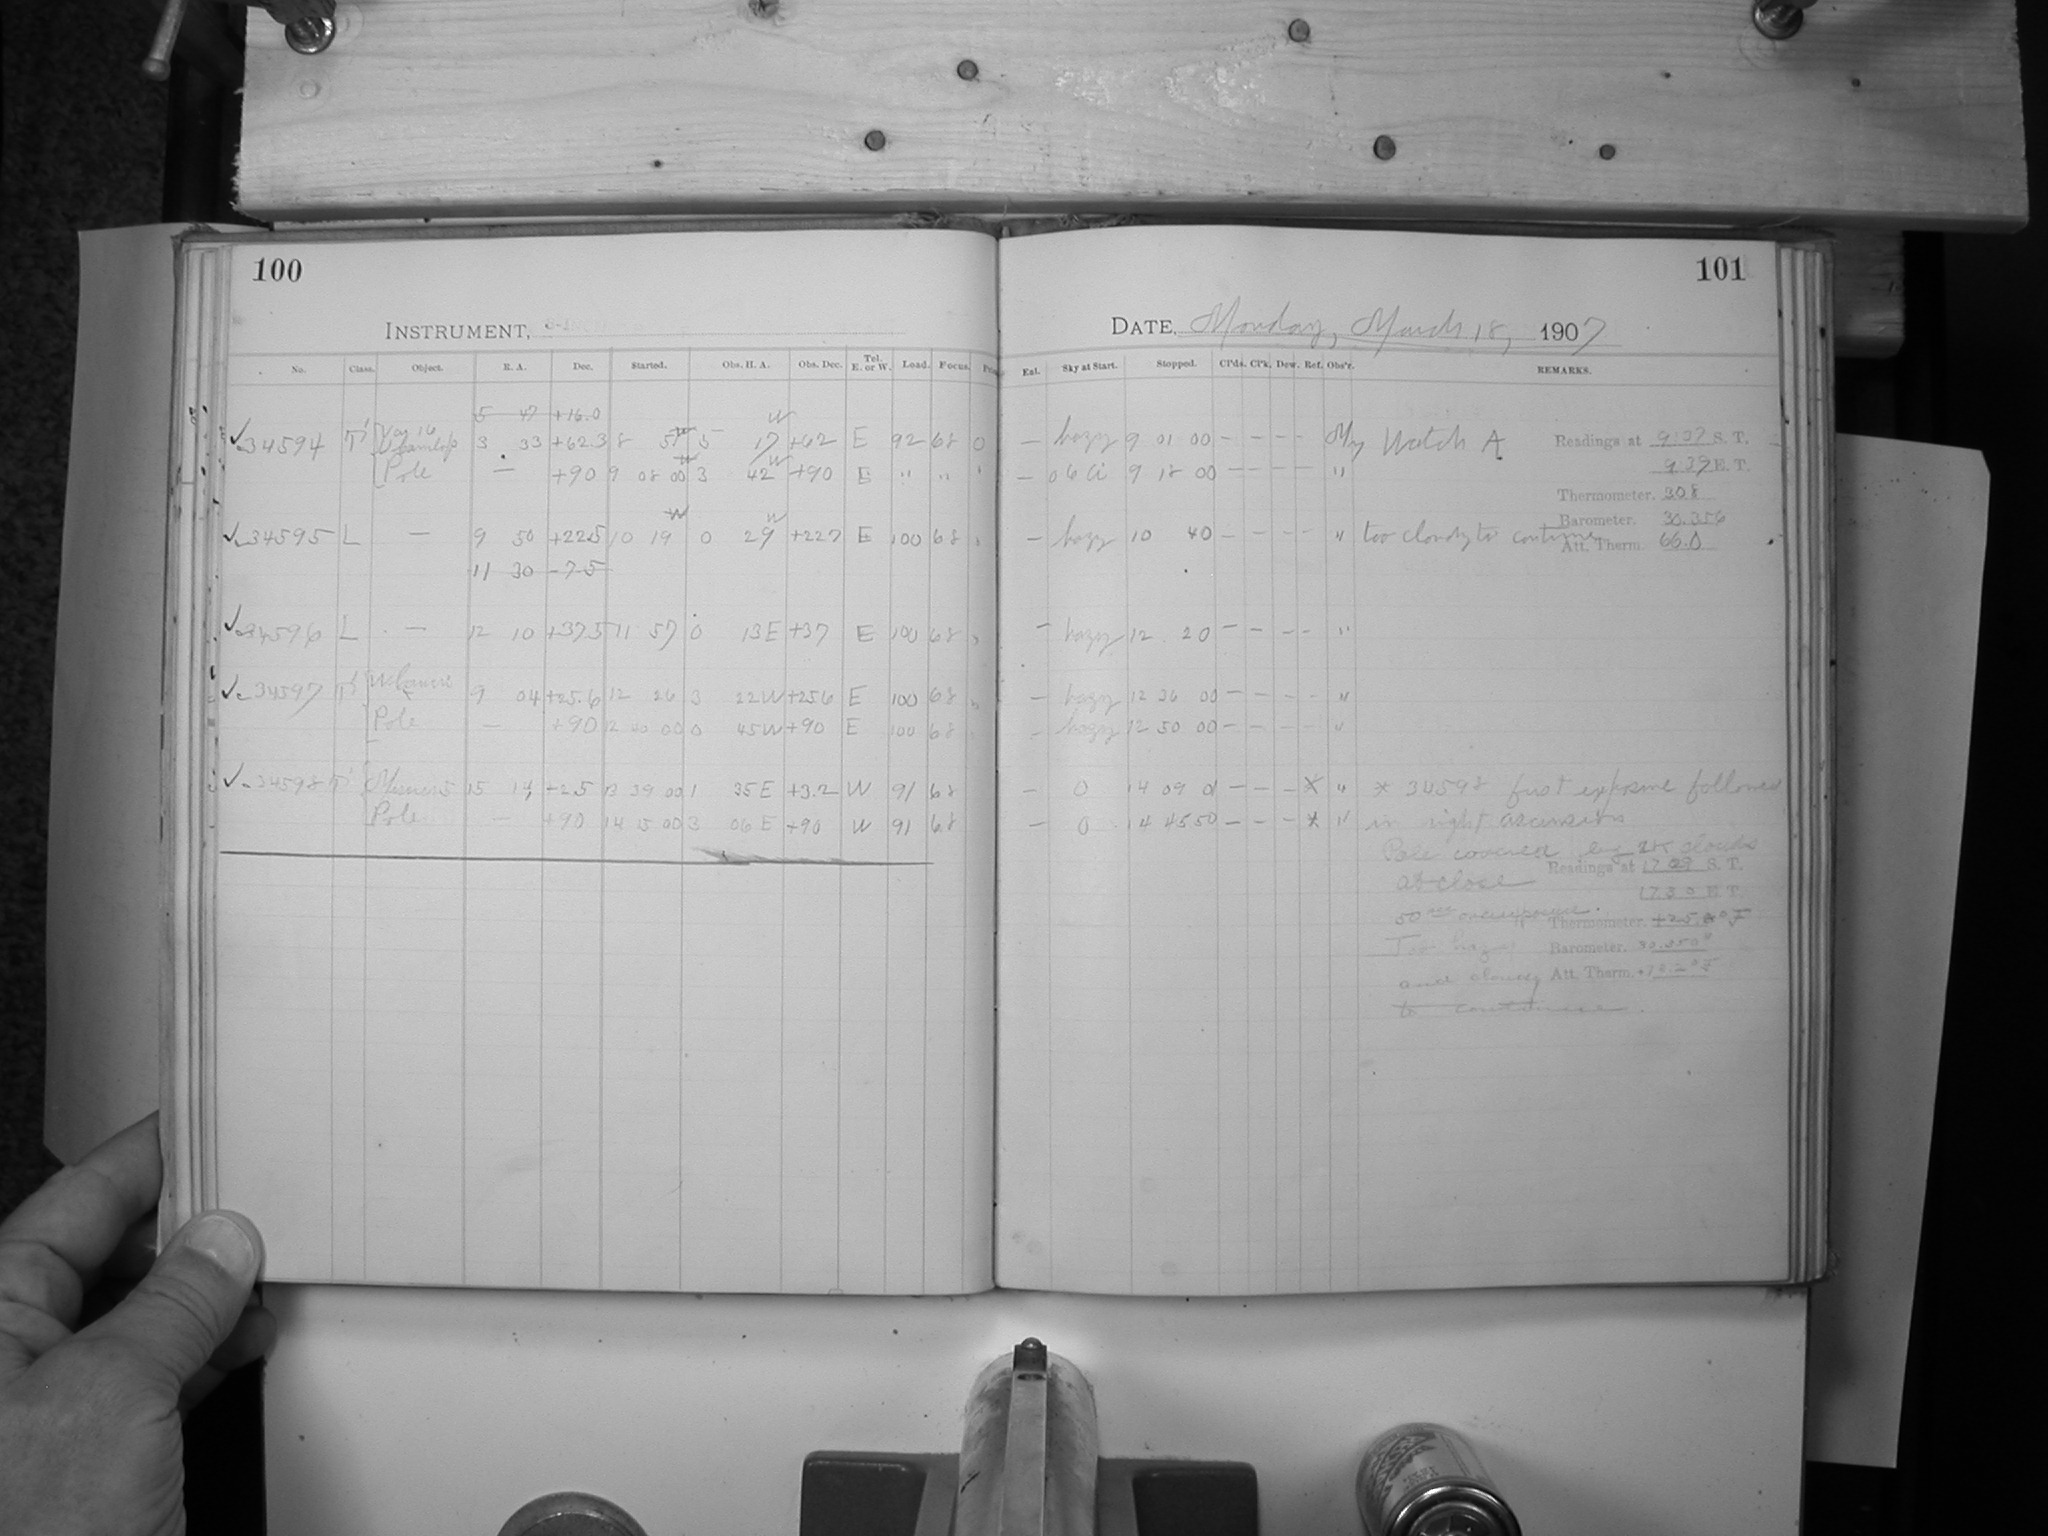 100
INSTRUMENT,
No. Class. Object. R. A. Dec. Started. Obs. H. A. Obs. Dec. Tel. E. or W. Load. Focus.
5 47 +16.0
34594 T' 3 33 +62.3 8 5 17 W +62 E 92 68 0
Pole — +90 9 08 00 3 42 W +90 E " "
34595 L — 9 50 +22.5 10 19 0 29 W +22.7 E 100 68
11 30 -7.5
34596 L — 12 10 +37.5 11 57 0 13 E +37 E 100 68
34597 T' 9 04 +25.6 12 26 3 22 W +25.6 E 100 68
Pole — +90 12 40 00 0 45 W +90 E 100 68
34598 T' 15 14 +2.5 13 39 00 1 35 E +3.2 W 91 68
Pole — +90 14 15 00 3 06 E +90 W 91 68
101
DATE, Monday, March 18, 1907
Eal. Sky at Start. Stopped. Cl'ds. Cl'k. Dew. Ref. Obs'r. REMARKS.
— hazy 9 01 00 — — — — My Watch A Readings at 9:37 S. T.
9:39 E. T.
— 9 18 00 — — — — "
Thermometer. 30.8
Barometer. 30.356
— hazy 10 40 — — — — " too cloudy to continue Att. Therm. 66.0
— hazy 12 20 — — — — "
— hazy 12 36 00 — — — — "
— hazy 12 50 00 — — — — "
— 0 14 09 0 — — — * " * 34598 first exposure follows
— 0 14 45 50 — — — * " in right ascension
Pole covered by clouds
at close Readings at 17 S. T.
17 30 E. T.
50 Thermometer.
Too hazy Barometer.
and cloudy Att. Therm.
to continue.